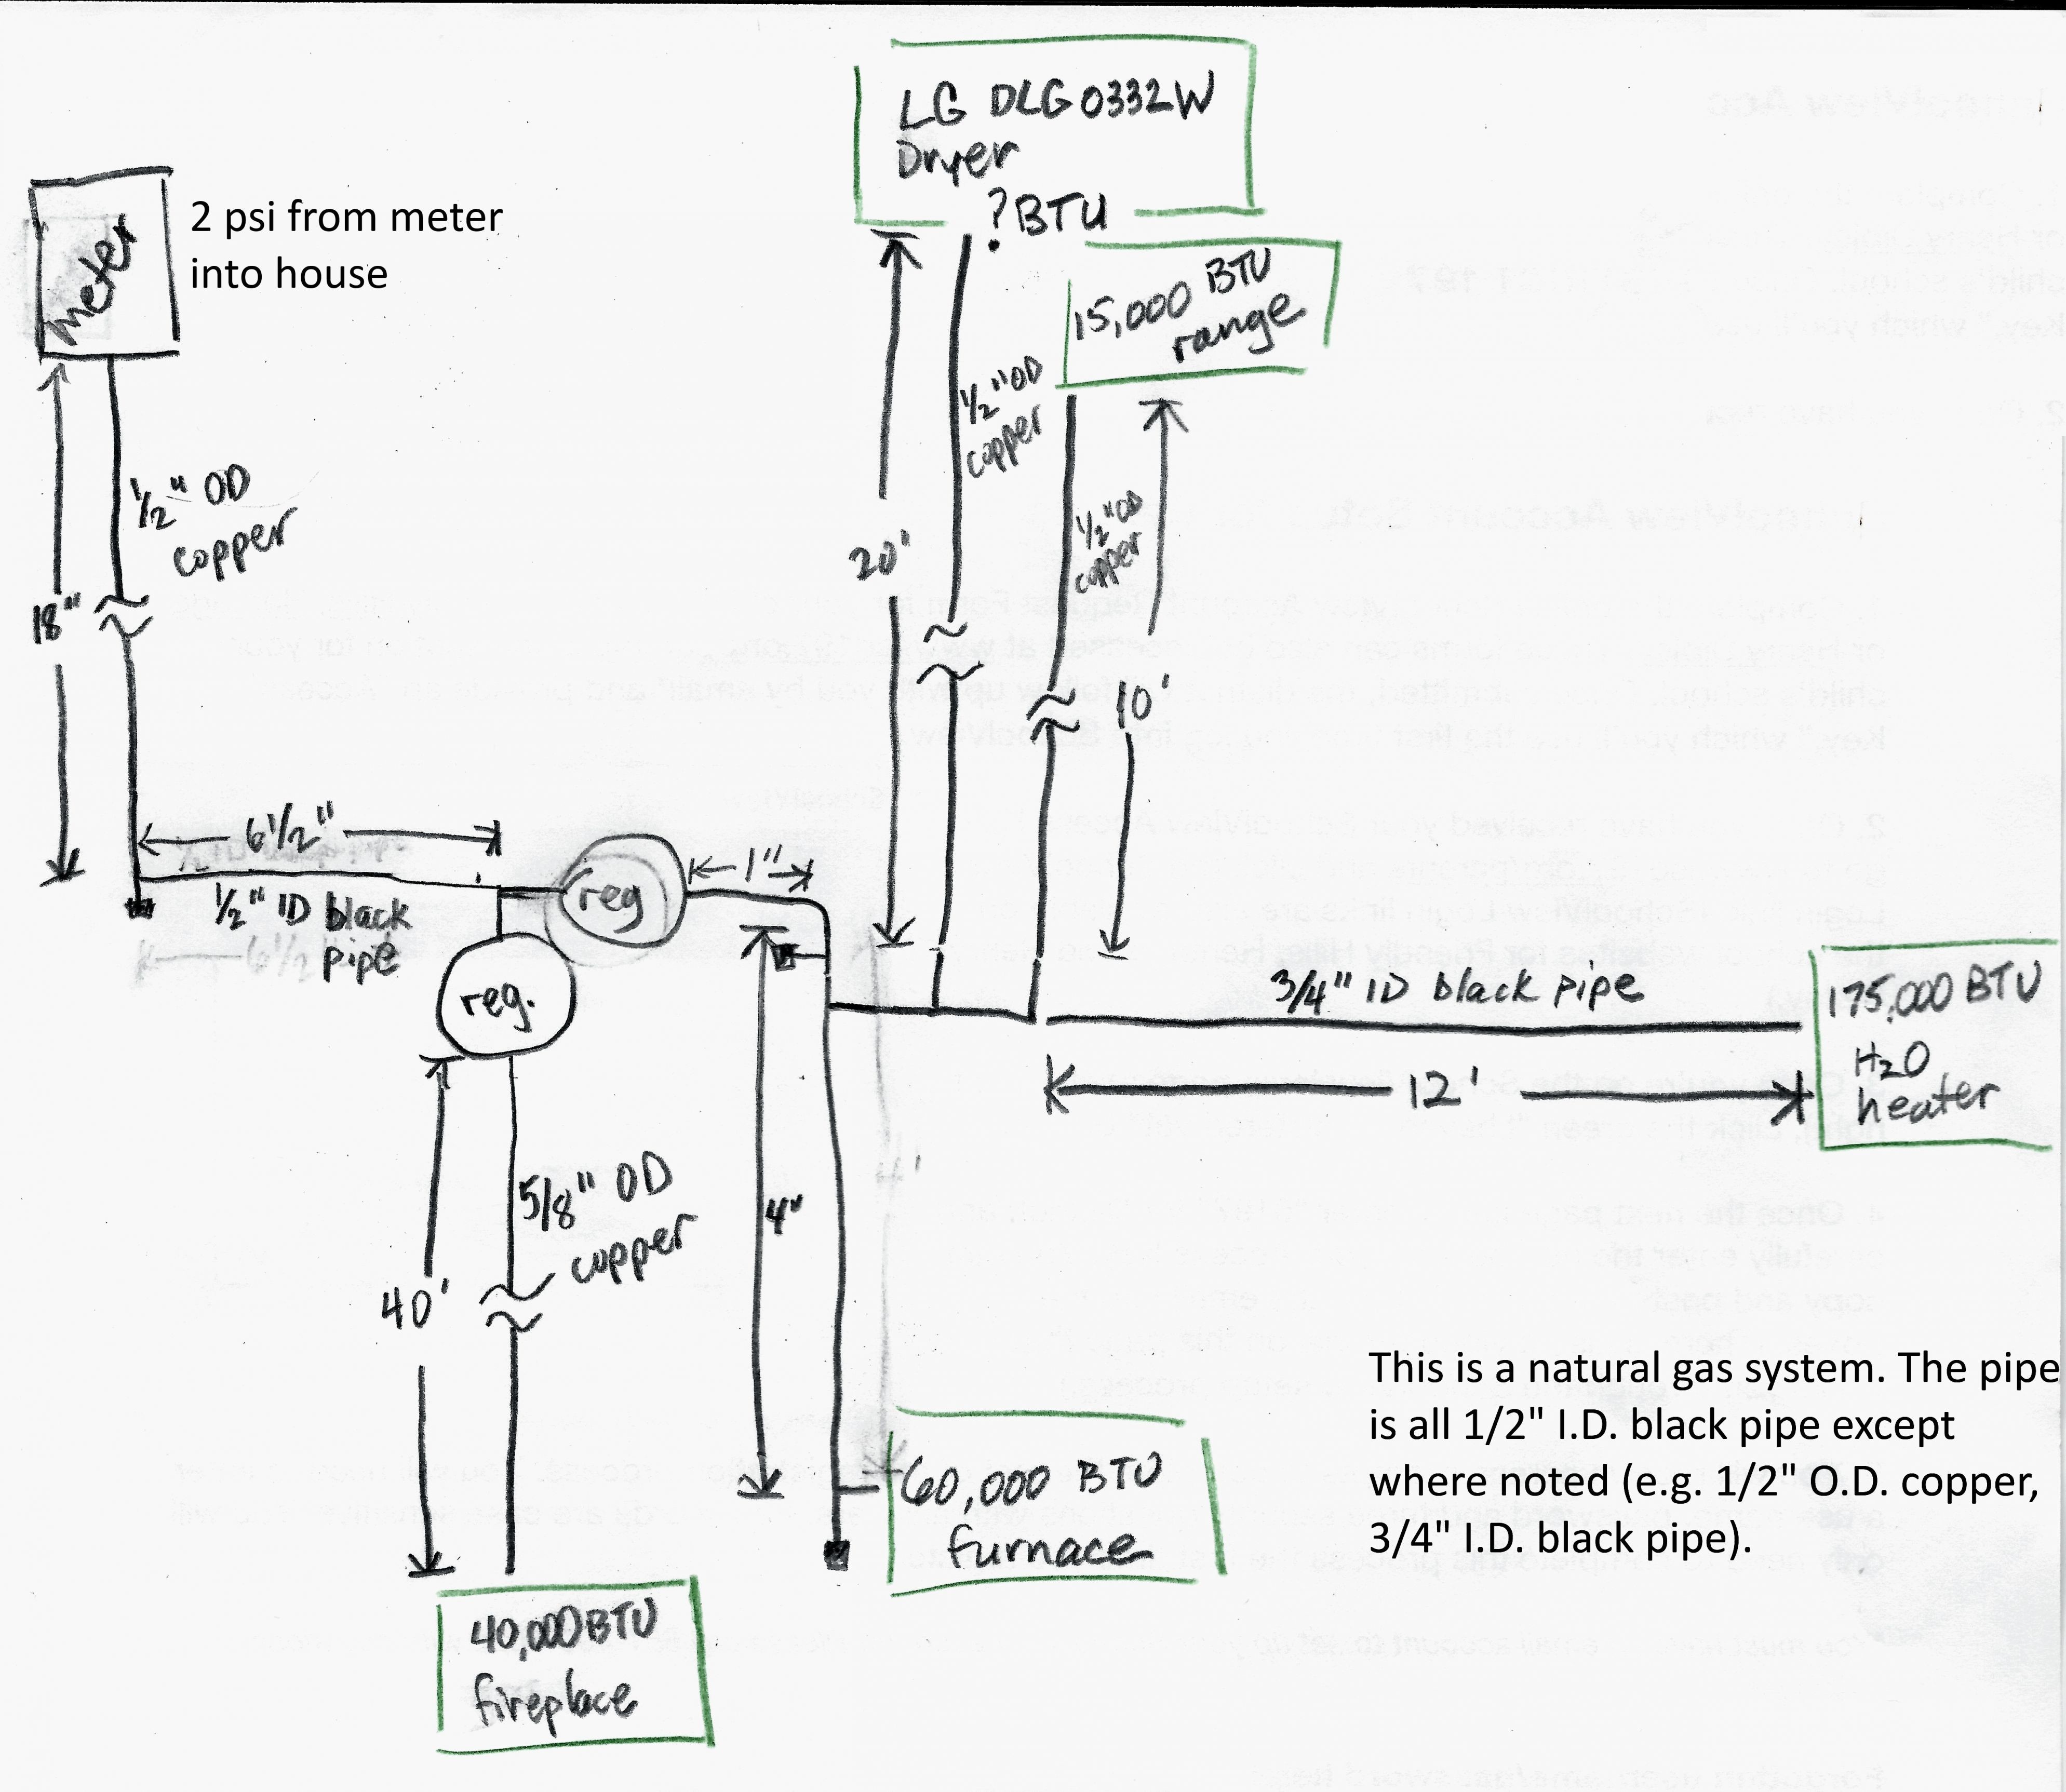 LG DLG0332W
Dryer
? BTU
meter
2 psi from meter
into house
15,000 BTU
range
1/2" OD
copper
1/2" OD
copper
1/2" OD
copper
18"
20'
10'
6 1/2"
1/2" ID black
pipe
reg
1"
reg.
3/4" ID black pipe
12'
175,000 BTU
H2O
heater
5/8" OD
copper
40'
4"
60,000 BTU
furnace
40,000 BTU
fireplace
This is a natural gas system. The pipe
is all 1/2" I.D. black pipe except
where noted (e.g. 1/2" O.D. copper,
3/4" I.D. black pipe).